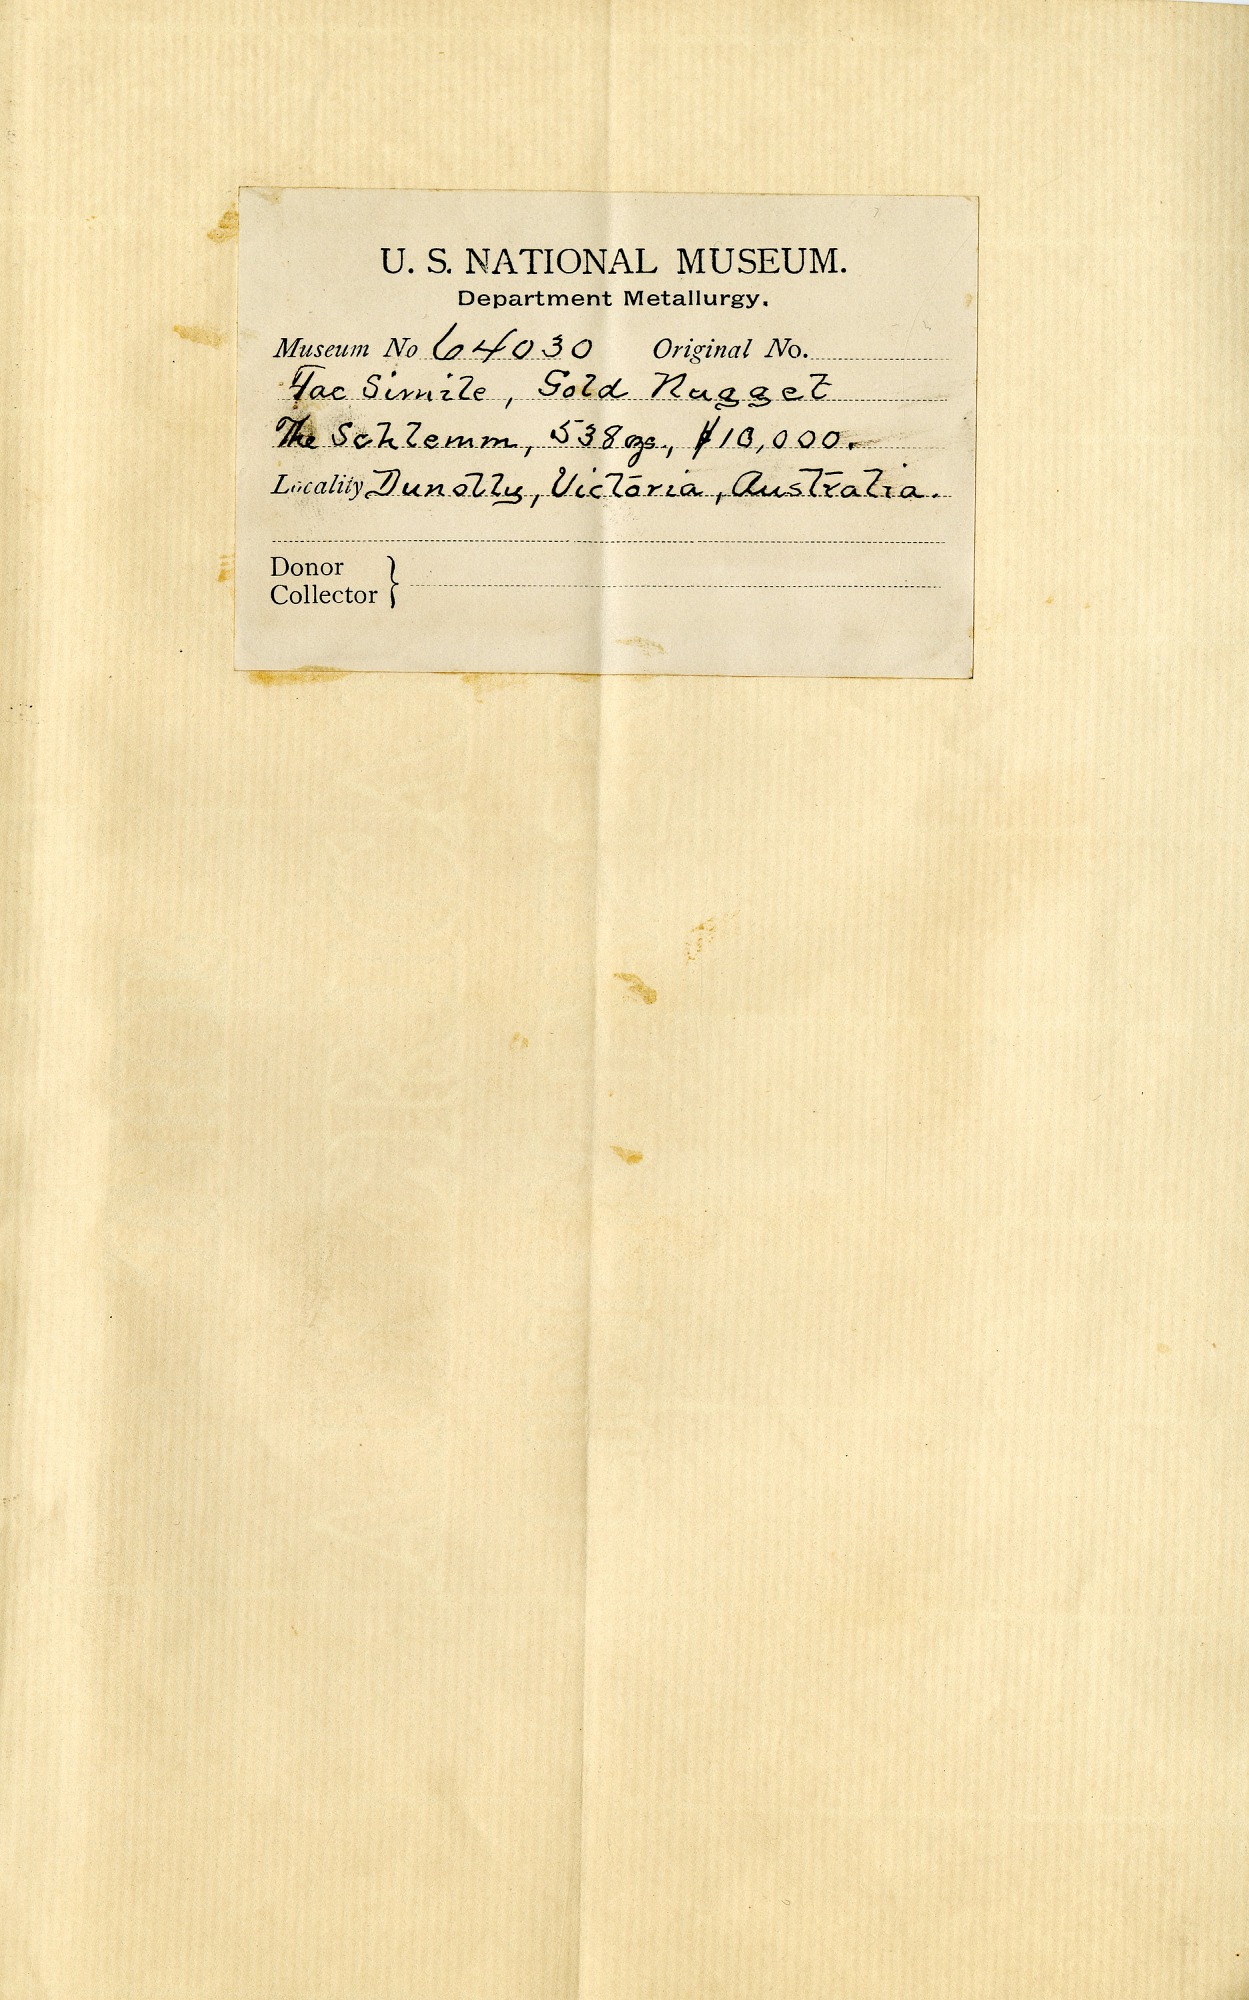 U. S. NATIONAL MUSEUM.
Department Metallurgy.
Museum No 64030 Original No.
Fac Simile, Gold Nugget
The Schlemm, 538 ozs., $10,000.
Locality Dunolly, Victoria, Australia.
Donor
Collector }